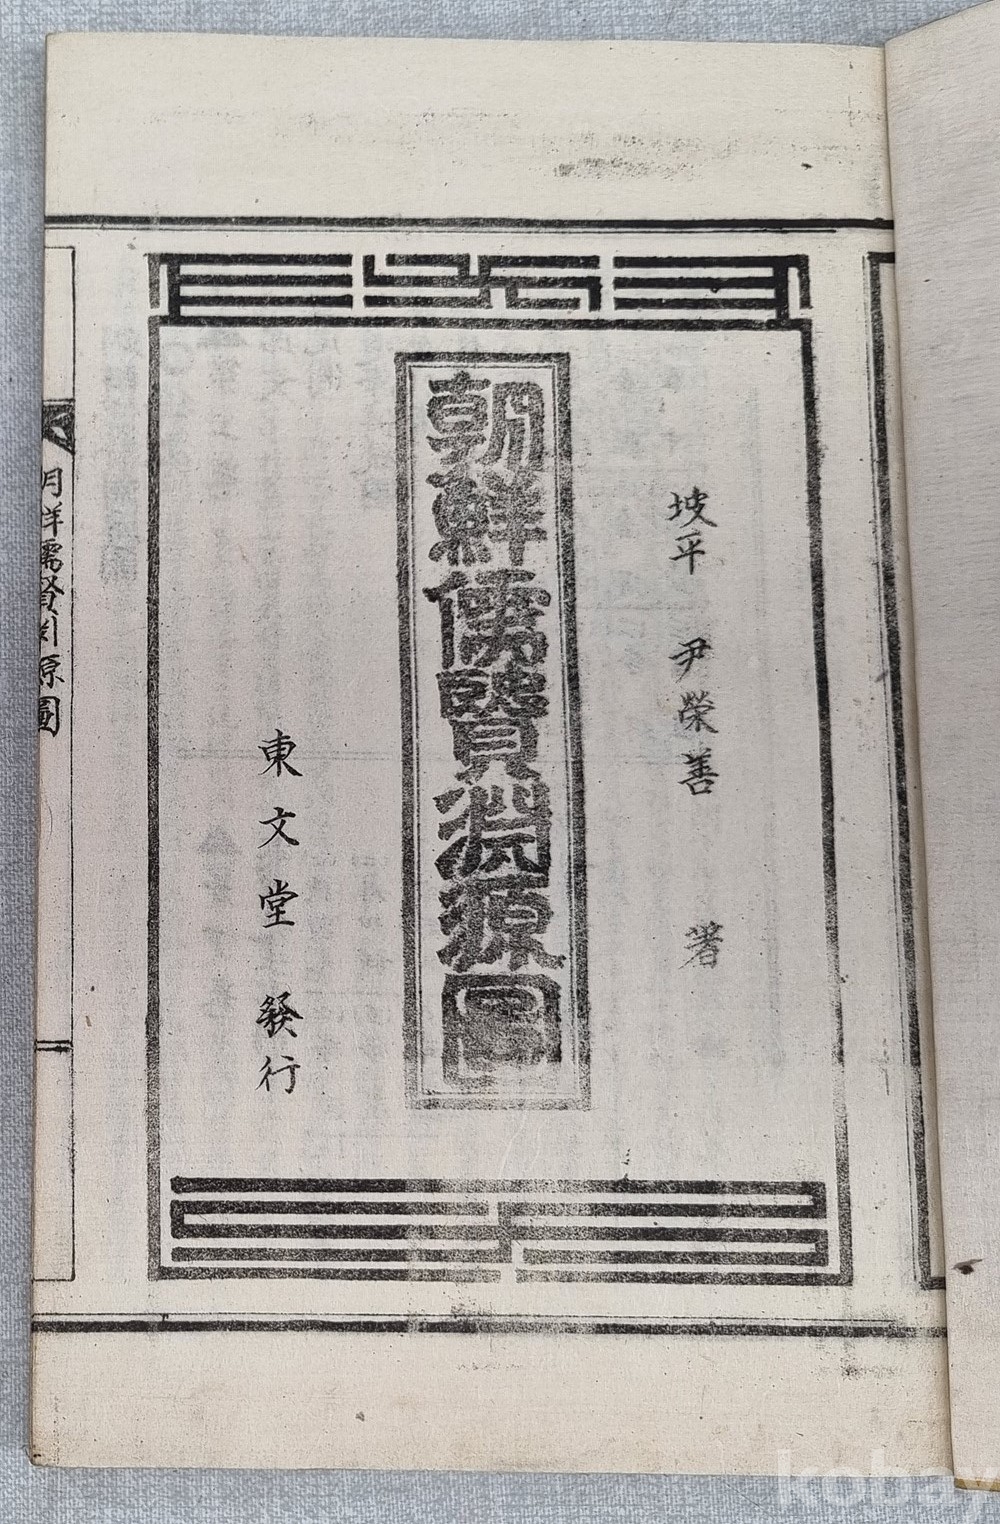 坡平 尹榮善 著
朝鮮儒賢淵源圖
東文堂 發行
朝鮮儒賢淵源圖
kobay